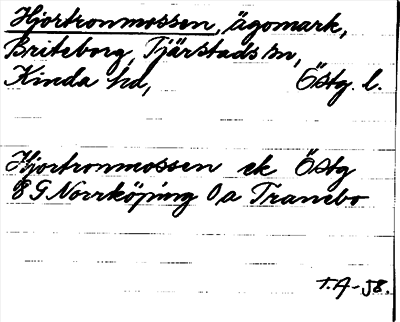 Hjortronmossen, ägomark,
Briteborg, Tjärstads sn,
Kinda hd, Östg. l.
Hjortronmossen ek Östg
8 G Norrköping 0 a Tranebo
T.A-58.